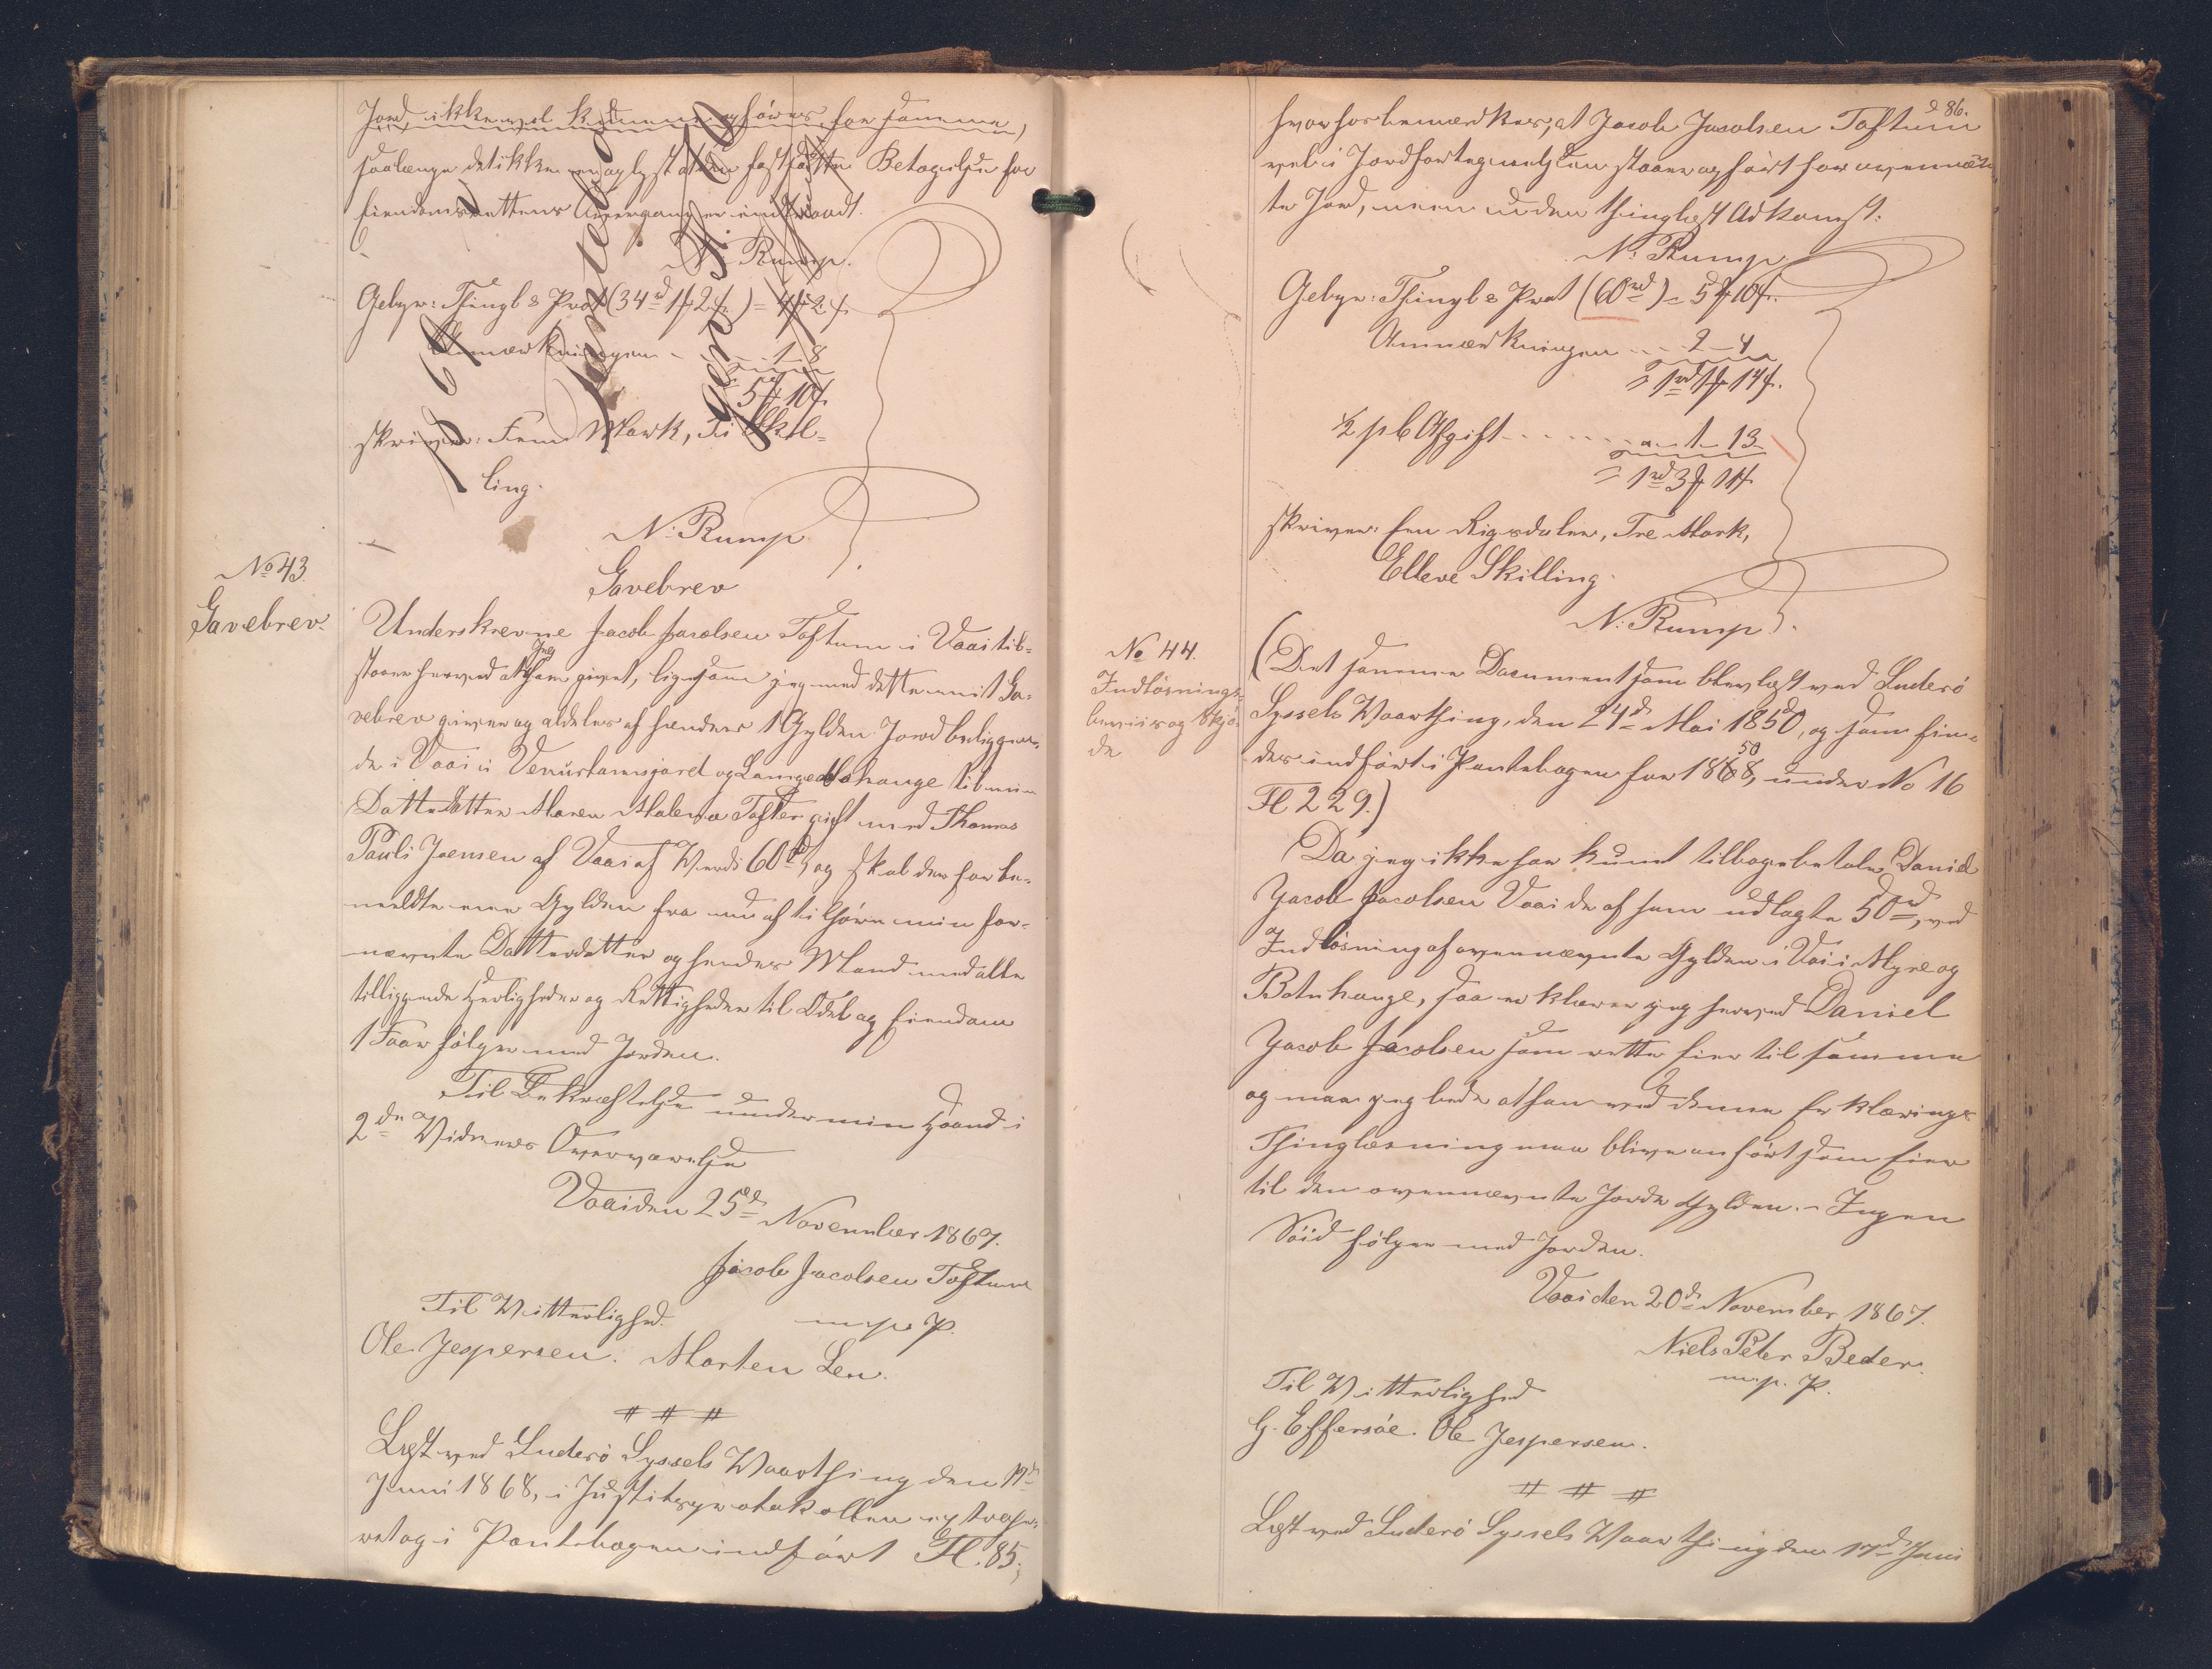 Jord ikkevel kunne opføres for samme,
saalænge det ikke er oplyst at den fastsatte Betagelse for
Eiendomsrettens Overgang er indtraadt.
N. Rump.
Gebyr: Thingl & Prot (34rd 1 2 ) = 4 2
Anmærkningen - - 1 - 8
5 10
skriver: Fem Mark, Ti Skil=
ling.
N. Rump
No 43.
Gavebrev.
Gavebrev
Underskrevne Jacob Jacobsen Toftum i Vaai til=
staaer herved at jeg har givet, ligesom jeg med dette mit Ga=
vebrev giver og aldeles afhænder 1 Gylden Jord beliggen=
de i Vaai i og til min
Datterdatter Maren Malena gift med Thomas
Pauli Joensen af Vaai af Værdi 60rd, og skal derfor be=
meldte een Gylden fra nu af tilhøre min for=
nævnte Datterdatter og hendes Mand med alle
tilliggende Herligheder og Rettigheder til Odel og Eiendom
1 Faar følger med Jorden.
Til Bekræftelse under min Haand i
2de Vidners Overværelse
Vaai den 25de November 1867.
Jacob Jacobsen Toftum
m. p. P.
Til Vitterlighed.
Ole Jespersen. Morten Len.
# # #
Læst ved Suderö Syssels Vaarthing den 17de
Juni 1868, i Justitsprotokollen extrahe=
ret og i Pantebogen indført Fl. 85;
86.
hvorhos bemærkes, at Jacob Jacobsen Toftum
vel i Jordfortegnelsen staaer opført for ovennævn=
te Jord, men uden thinglæst Adkomst.
N. Rump
Gebyr: Thingl & Prot (60rd) = 5 10
Anmærkningen - - 2 - 4
1rd 1 14
½ p C Afgift - - - - - - 1 - 13
1rd 3 11
skriver: Een Rigsdaler, Tre Mark,
Elleve Skilling.
N. Rump
No 44.
Indlösnings=
beviis og Skjö=
de
(Det samme Document som blev læst ved Suderö
Syssels Vaarthing, den 24de Mai 1850, og som fin=
des indført i Pantebogen for 1850, under No 16
Fl 229.)
Da jeg ikke har kunnet tilbagebetale Daniel
Jacob Jacobsen Vaai de af ham udlagte 50rd, ved
Indlösning af ovennævnte Gylden i Vaai i Myre og
Botnhauge, saa erklærer jeg herved Daniel
Jacob Jacobsen som rette Eier til samme
og maa jeg bede at han ved denne Erklærings
Thinglæsning maa blive anført som Eier
til den ovennævnte Jorde Gylden. - Ingen
Söid følger med Jorden.
Vaai den 20de November 1867.
Niels Peter Beder.
m. p. P.
Til Vitterlighed
G. Effersöe. Ole Jespersen.
# # #
Læst ved Suderö Syssels Vaarthing den 17de Juni